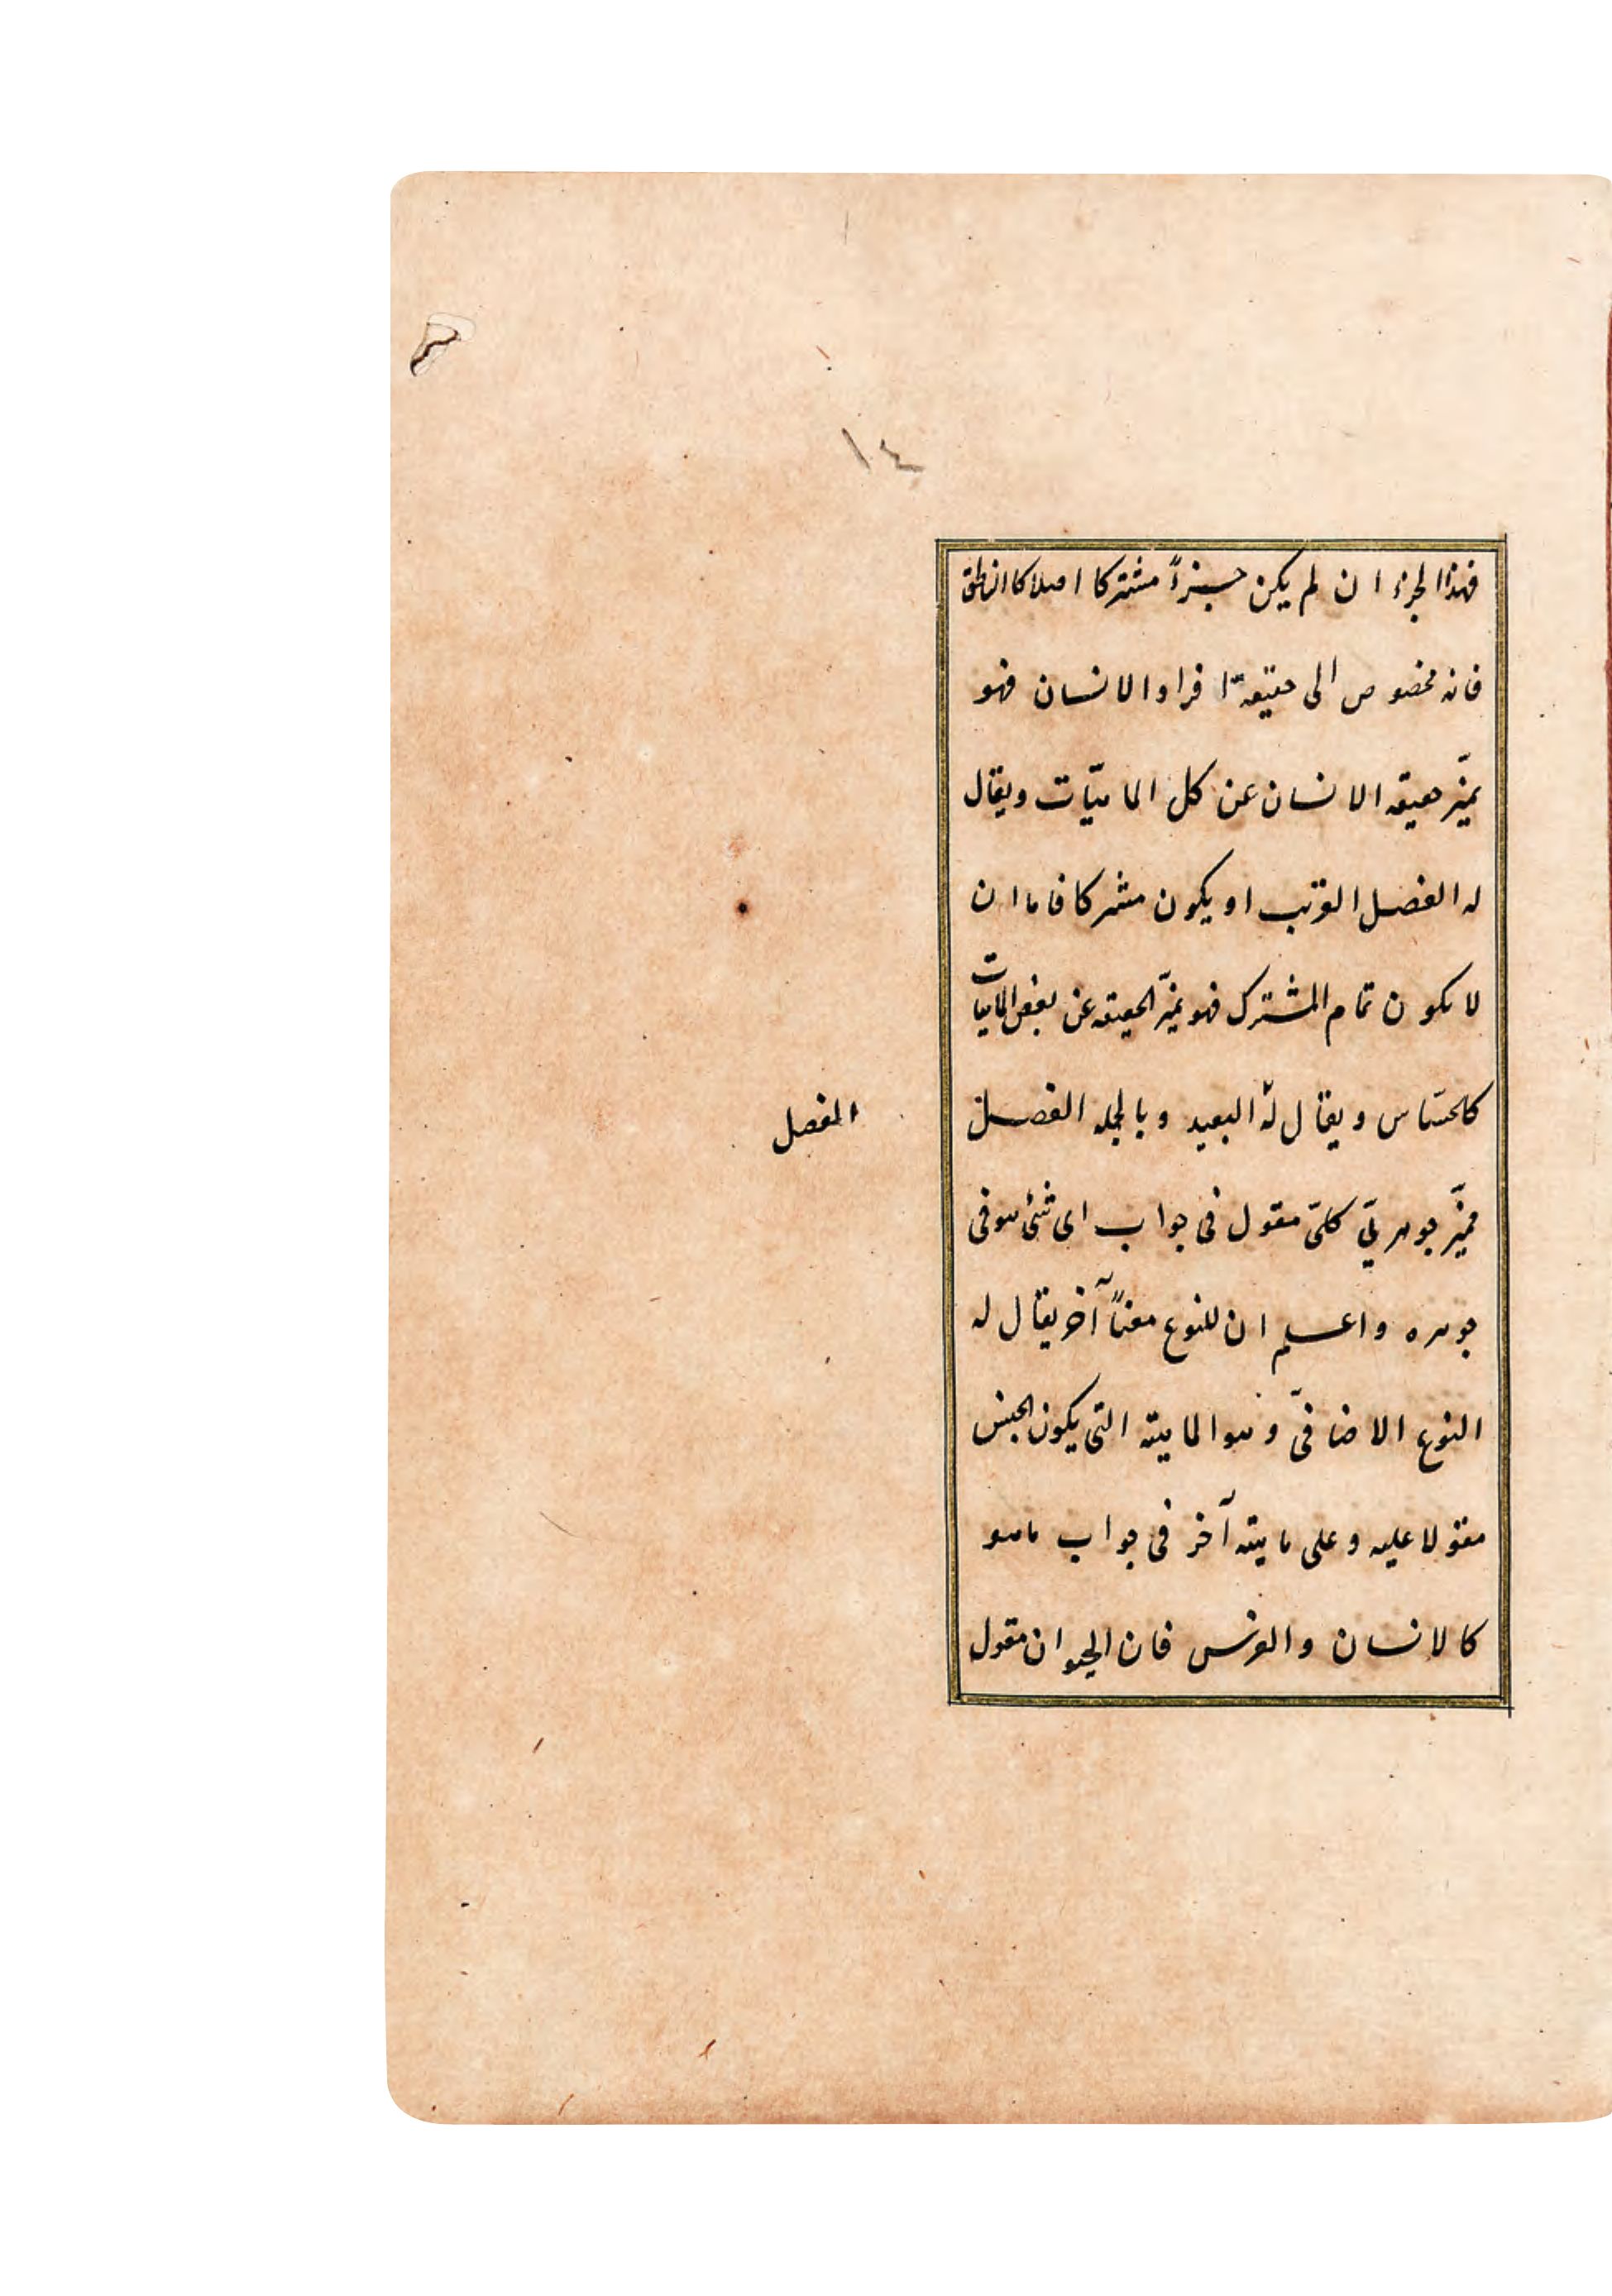 ١٤
فهذا الجزء ان لم يكن جزءاً مشتركا اصلا كالناطق
فانه مخصوص الى حقيقة افراد الانسان فهو
يميّز حقيقه الانسان عن كل الماهيّات ويقال
له الفصل القريب او يكون مشتركا فاما ان
لا يكون تمام المشترك فهو يميّز الحقيقه عن بعض الماهيات
كالحسّاس ويقال له البعيد وبالجمله الفصل
الفصل
مميّز جوهريّ كلىّ مقول فى جواب اى شئ هو فى
جوهره واعلم ان للنوع معناً آخر يقال له
النوع الاضافىّ وهو الماهية التى يكون الجنس
مقولا عليه وعلى ماهية آخر فى جواب ماهو
كالانسان والفرس فان الحيوان مقول